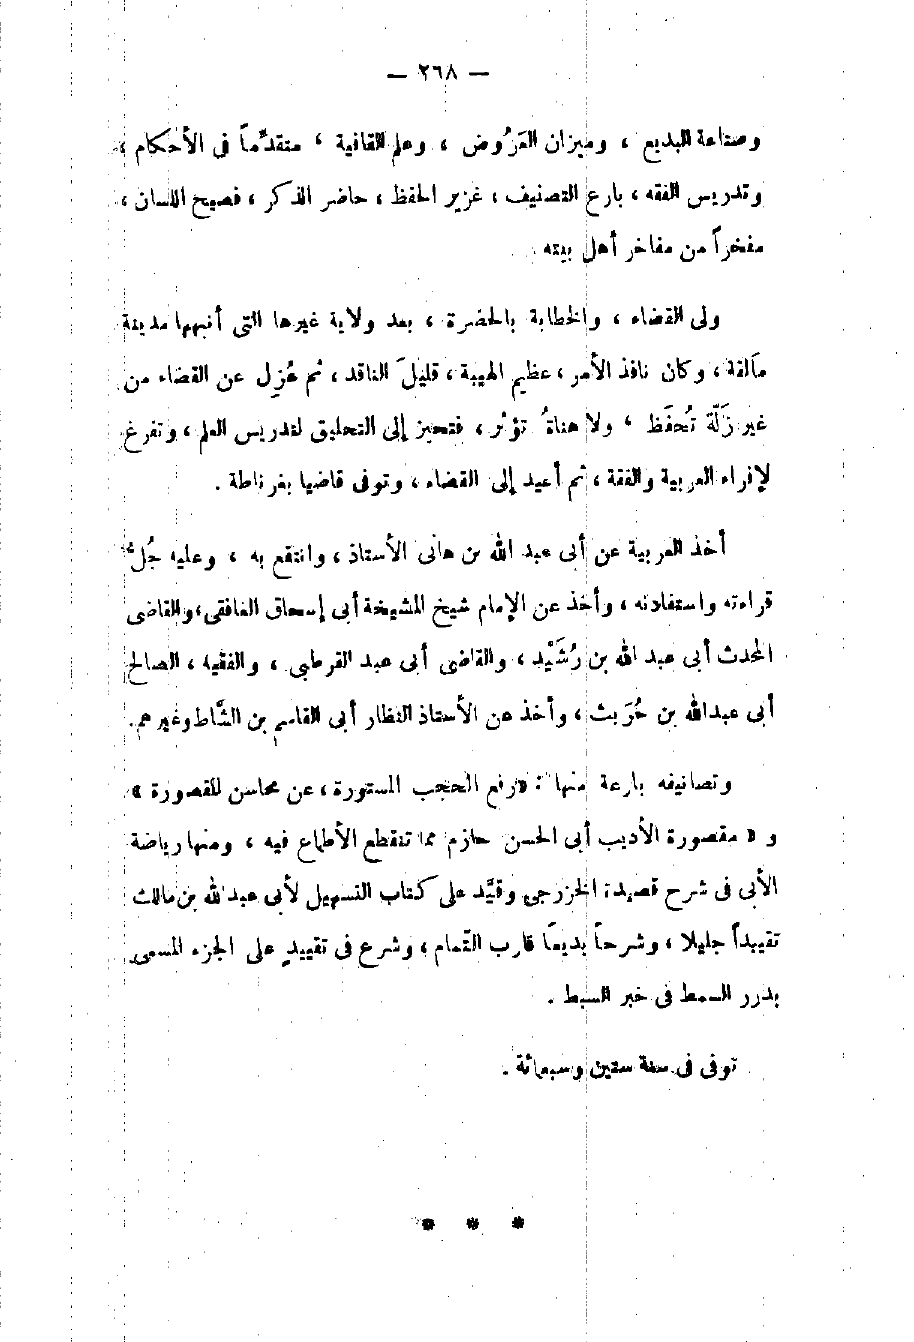 — ٢٦٨ —
وصناعة البديع ، وميزان العَرُوض ، وعلم القافية ، متقدِّماً فى الأحكام ،
وتدريس الفقه ، بارع التصنيف ، غزير الحفظ ، حاضر الذكر ، فصيح اللسان ،
مفخراً من مفاخر أهل بيته .
ولى القضاء ، والخطابة بالحضرة ، بعد ولاية غيرها التى أنبهها مدينة
مَالقة ، وكان نافذ الأمر ، عظيم الهيبة ، قليلَ الناقد ، ثم عُزِل عن القضاء من
غير زَلّة تُحفَظ ، ولا هناةُ تؤثر ، فتحيز إلى التحليق لتدريس العلم ، وتفرغ
لإقراء العربية والفقة ، ثم أعيد إلى القضاء ، وتوفى قاضيا بغرناطة .
أخذ العربية عن أبى عبد الله بن هانى الأستاذ ، وانتفع به ، وعليه جُل
قراءته واستفادته ، وأخذ عن الإمام شيخ المشيخة أبى إسحاق الغافقى ، والقاضى
المحدث أبى عبد الله بن رُشَيْد ، والقاضى أبى عبد القرطبى ، والفقيه ، الصالح
أبى عبدالله بن حُرَيث ، وأخذ عن الأستاذ النظار أبى القاسم بن الشَّاط وغيرهم .
وتصانيفه بارعة منها : «رفع الحجب المستورة ، عن محاسن المقصورة »
و « مقصورة الأديب أبى الحسن حازم مما تنقطع الأطماع فيه ، ومنها رياضة
الأبى فى شرح قصيدة الخزرجى وقيَّد على كتاب التسهيل لأبى عبد الله بن مالك
تقييداً جليلا ، وشرحاً بديعًا قارب التّمام ، وشرع فى تقييدٍ على الجزء المسمى
بدرر السمط فى خبر السبط .
توفى فى سنة ستين وسبعمائة .
* * *